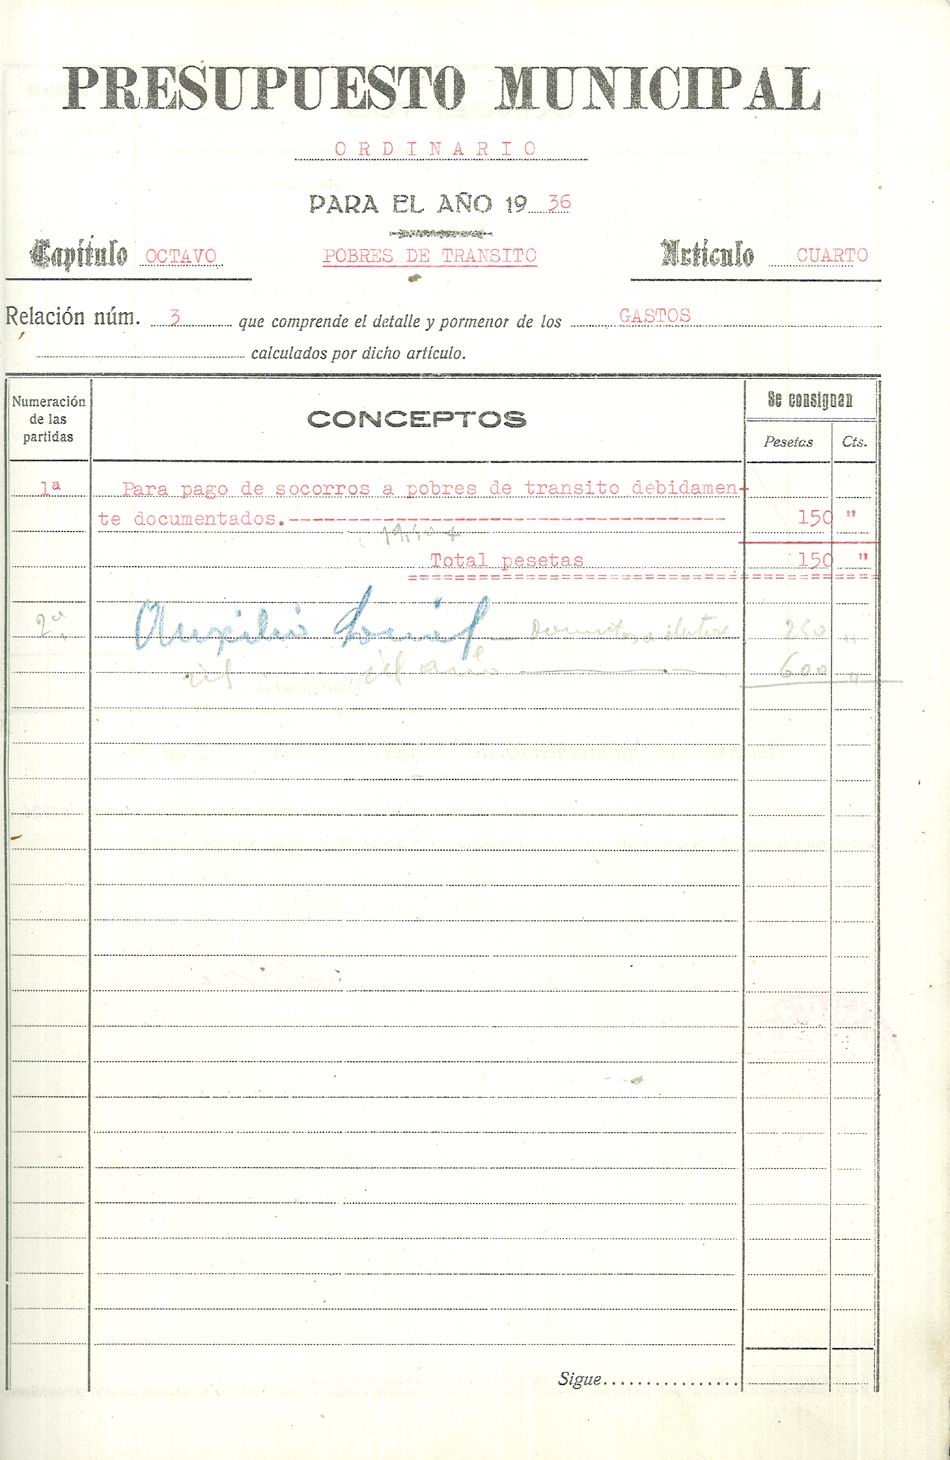 PRESUPUESTO MUNICIPAL
ORDINARIO
PARA EL AÑO 1936
Capítulo OCTAVO POBRES DE TRANSITO Artículo CUARTO
Relación núm. 3 que comprende el detalle y pormenor de los GASTOS
calculados por dicho artículo.
Numeración de las partidas CONCEPTOS Se consignan
Pesetas Cts.
1ª Para pago de socorros a pobres de transito debidamen-
te documentados.------------------------------------ 150 "
Total pesetas 150 "
2ª Auxilio Social 250 "
id 600 "
Sigue................